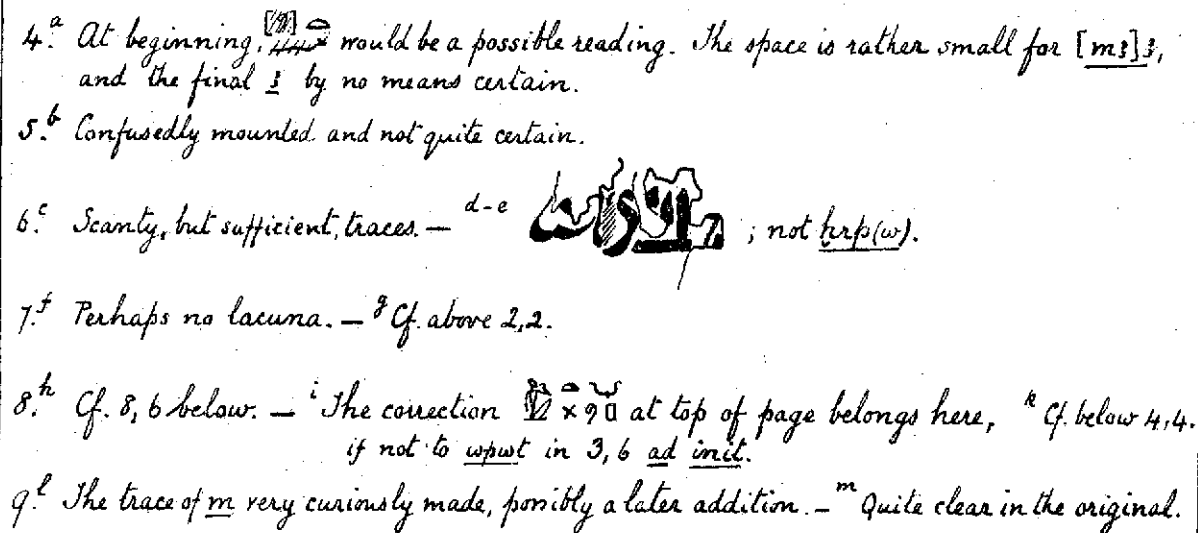 4.ª At beginning, would be a possible reading. The space is rather small for [mꜣ]ꜣ,
and the final ꜣ by no means certain.
5.ᵇ Confusedly mounted and not quite certain.
6.ᶜ Scanty, but sufficient, traces. — ᵈ⁻ᵉ ; not ḫrp(w).
7.ᶠ Perhaps no lacuna. — ᵍ Cf. above 2,2.
8.ʰ Cf. 8, 6 below. — ⁱ The correction at top of page belongs here, ᵏ Cf. below 4,4.
if not to wpwt in 3, 6 ad init.
9.ˡ The trace of m very curiously made, possibly a later addition. — ᵐ Quite clear in the original.